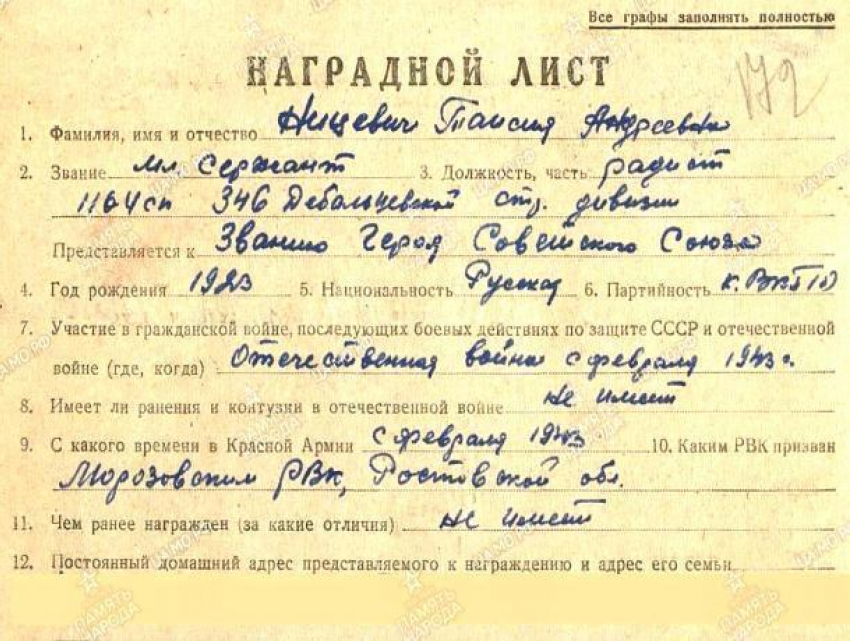 Все графы заполнять полностью
НАГРАДНОЙ ЛИСТ
172
1. Фамилия, имя и отчество Ницевич Таисия Андреевна
2. Звание мл сержант 3. Должность, часть радист
1164 сп 346 Дебальцевской стр. дивизии
Представляется к Званию Героя Советского Союза
4. Год рождения 1923 5. Национальность Русская 6. Партийность к. ВКП(б)
7. Участие в гражданской войне, последующих боевых действиях по защите СССР и отечественной
войне (где, когда) Отечественная война с февраля 1943 г.
8. Имеет ли ранения и контузии в отечественной войне не имеет
9. С какого времени в Красной Армии с февраля 1943 10. Каким РВК призван
Морозовским РВК, Ростовской обл.
11. Чем ранее награжден (за какие отличия) не имеет
12. Постоянный домашний адрес представляемого к награждению и адрес его семьи
ПАМЯТЬ НАРОДА
ЦАМО.РФ